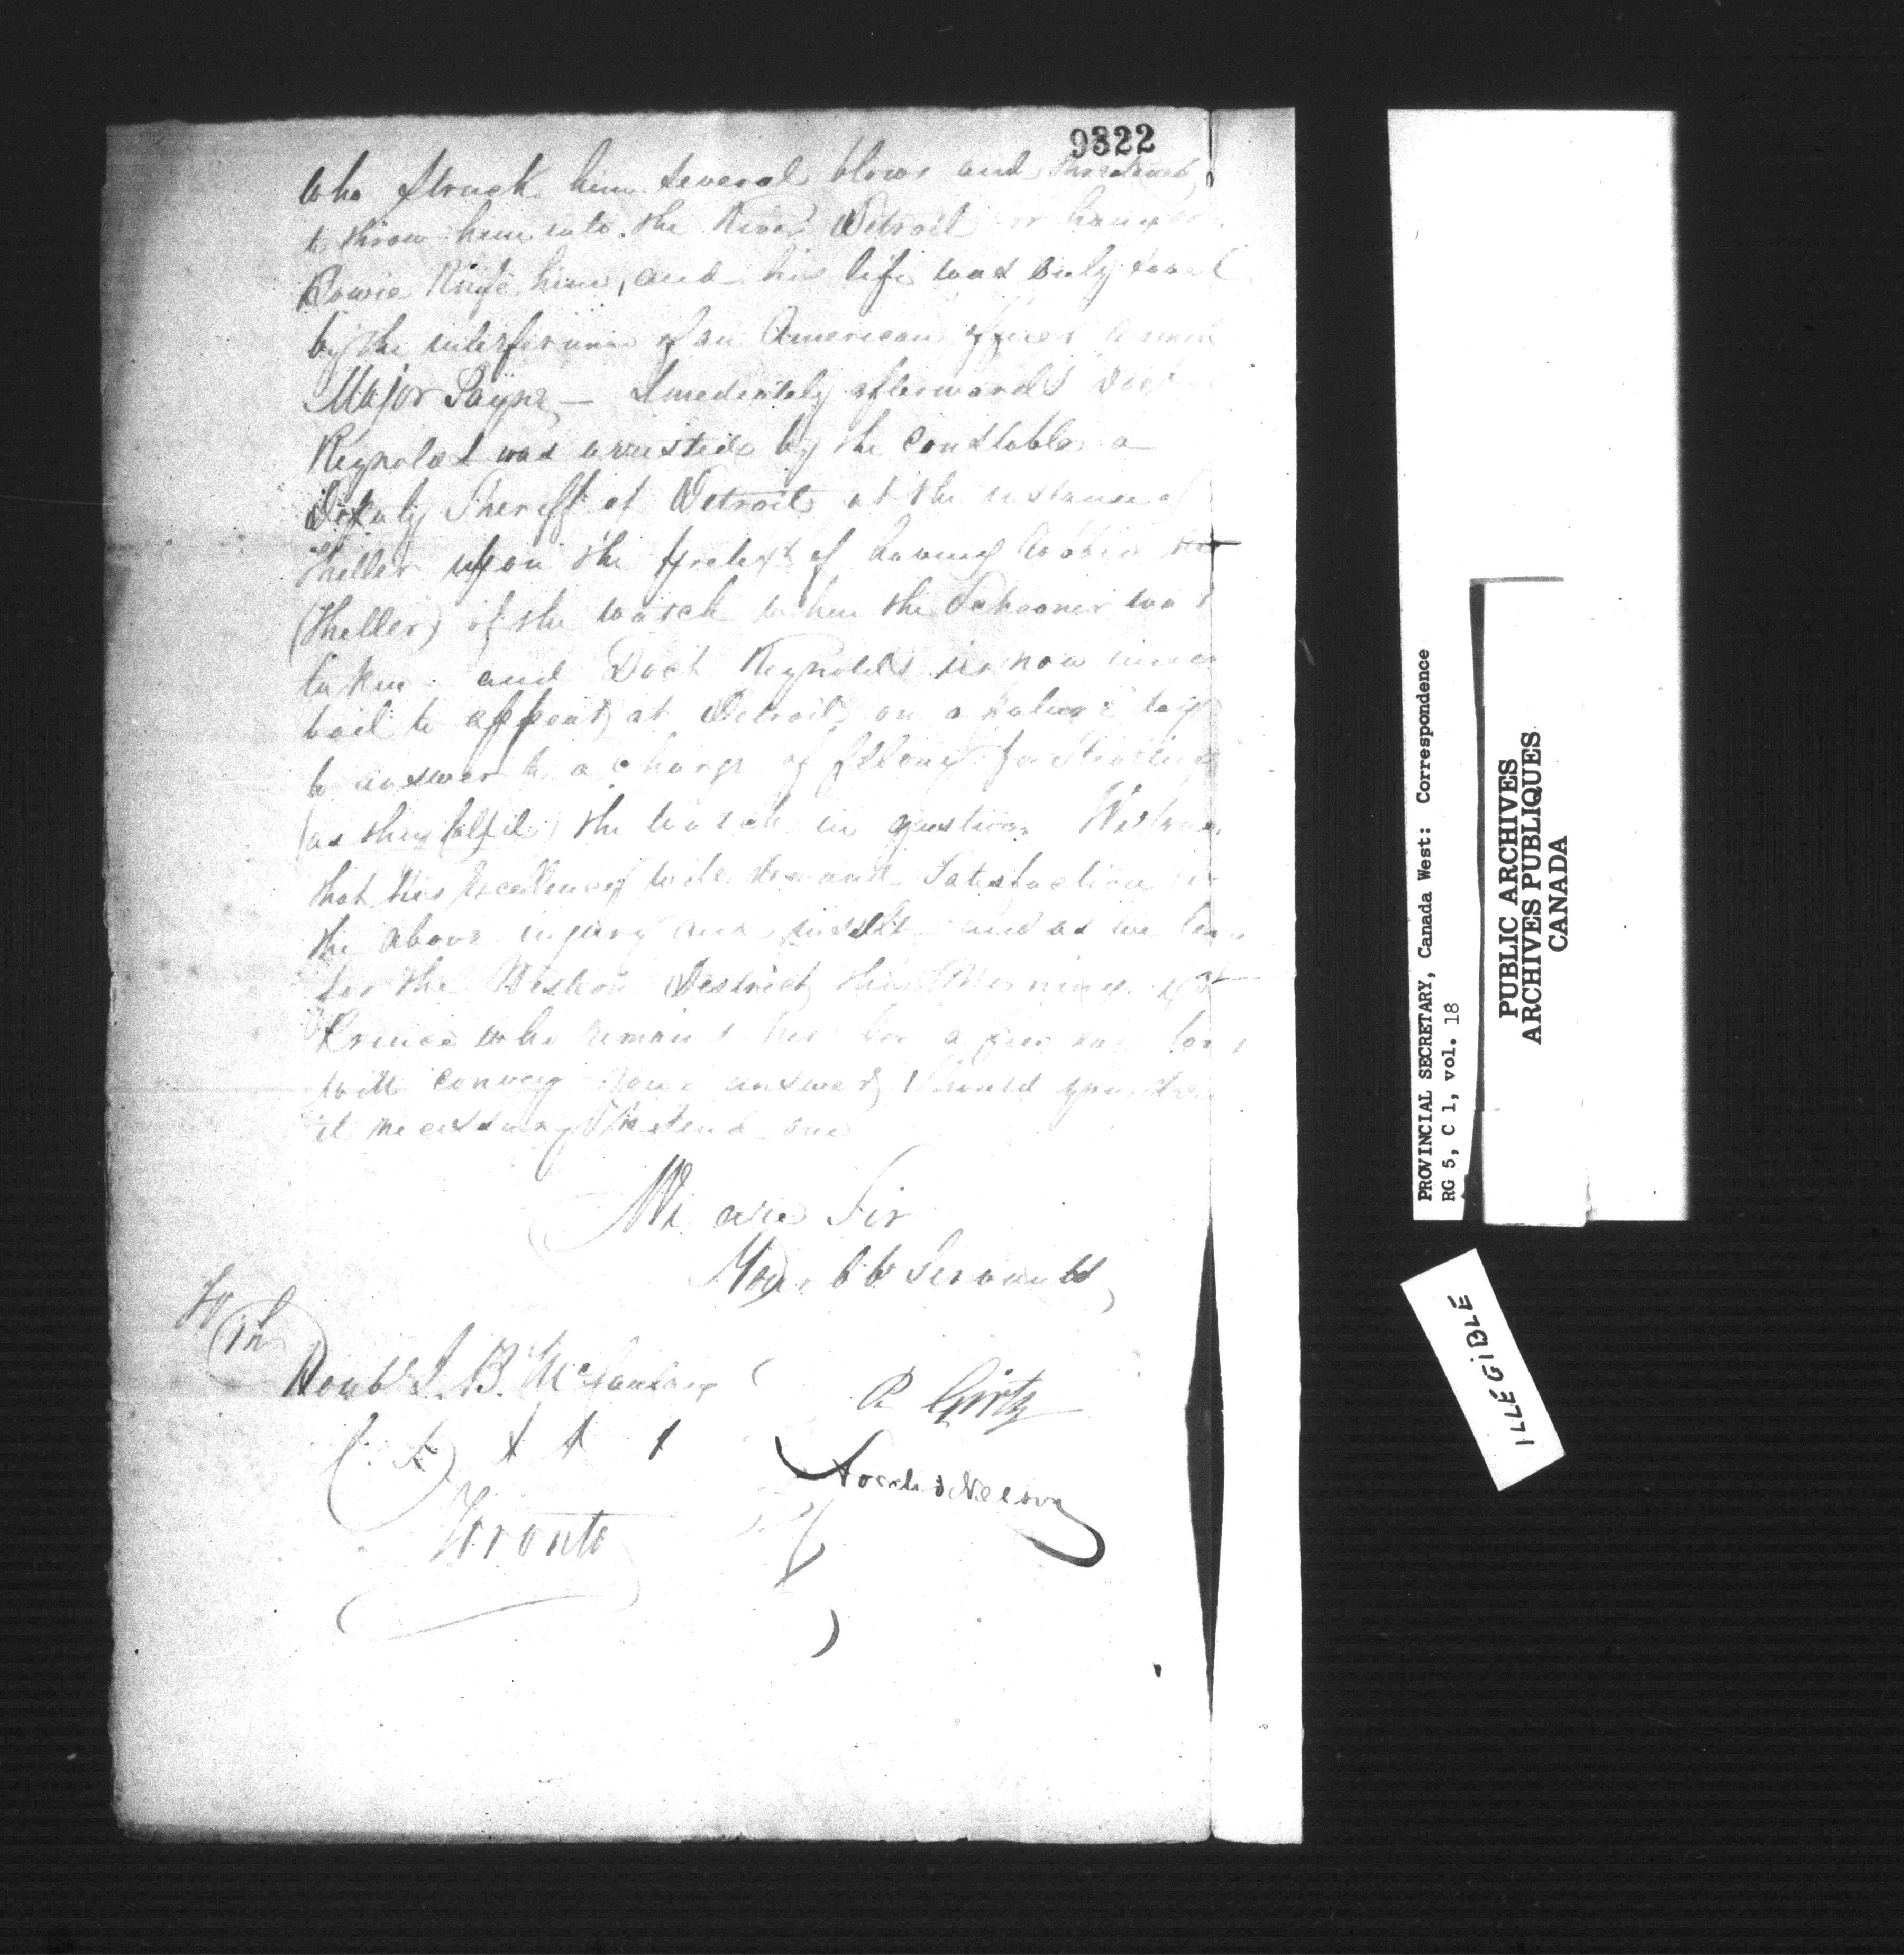 9322
Who struck him several blows and threatened
to throw him into the River Detroit or hang or
Bowie Knife him, and his life was only saved
by the interference of an American officer named
Major Payne — Imediately afterwards Doct
Reynolds was arrested by the constable a
Deputy Sheriff of Detroit at the instance of
Theller upon the pretext of having robbed him
(Theller) of the watch when the Schooner was
taken and Doct Reynolds is now under
bail to appear at Detroit on a future day
to answer to a charge of felony for Stealing
(as they falsely) the watch in question We trust
that His Excellency will demand Satisfaction for
the above injury and insult and as we leave
for the Western District this Morning
Prince who remains here for a few days longer
will convey your answer should you deem
it necessary to send one
We are Sir
Your Ob Servants
To
The
Honble J. B. McCaulay
Toronto
P Girty
PROVINCIAL SECRETARY, Canada West: Correspondence
RG 5, C 1, vol. 18
PUBLIC ARCHIVES
ARCHIVES PUBLIQUES
CANADA
ILLEGIBLE